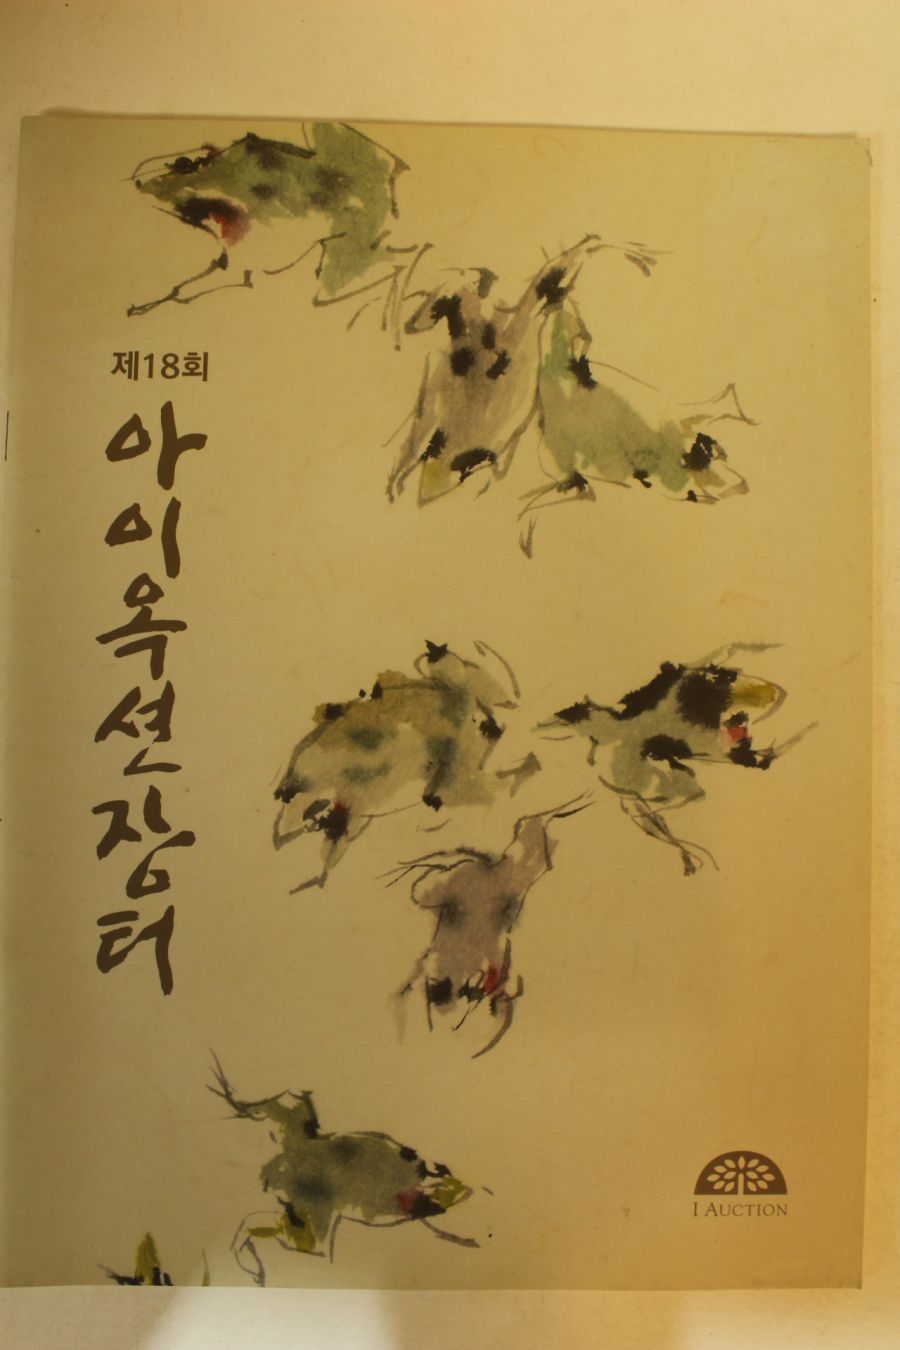 제18회
아이옥션장터
I AUCTION